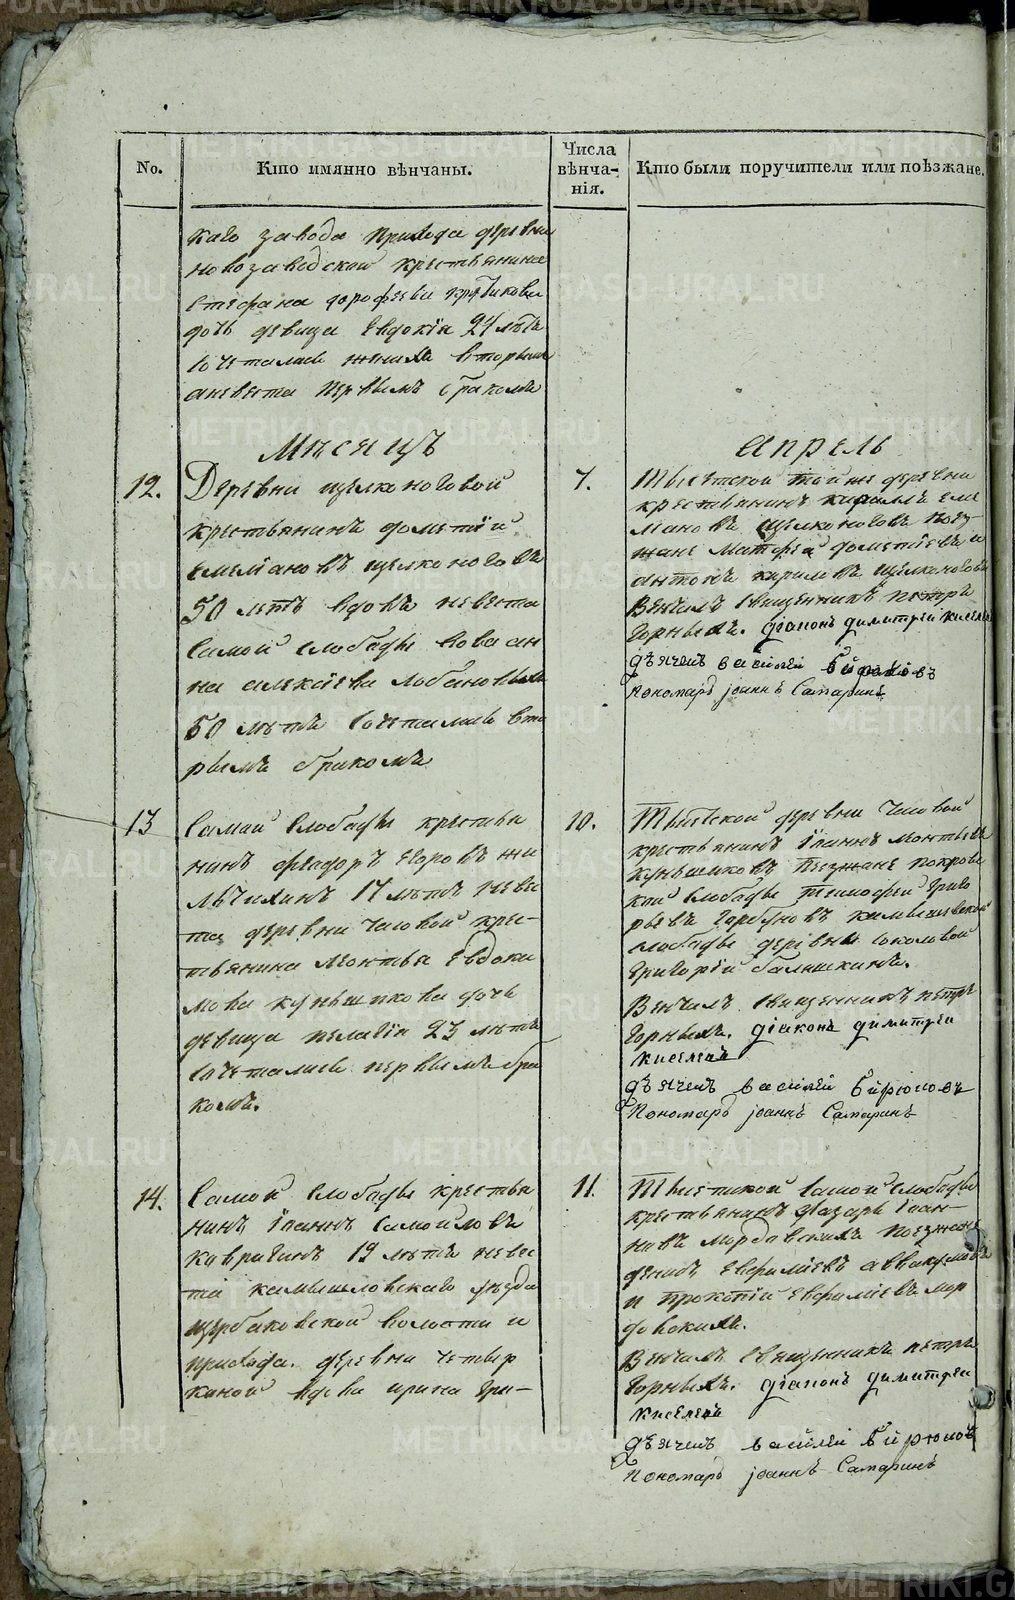 No.
Кто имянно вѣнчаны.
Числа вѣнча-
нія.
Кто были поручители или поѣзжане.
каго завода прихода деревни
новозаводской крестьянина
Стефана дорофеева
дочь девица Евдокія 24 лѣтъ
сочетались женихъ вторымъ
аневеста первымъ бракомъ
Мѣсяцъ
апрель
12.
Деревни щелконоговой
крестьянинъ дометій
емеліановъ щелконоговъ
50 летъ вдовъ невеста
самой слободы вдова ан
на алексіева лобановыхъ
50 лѣтъ сочетались вто
рымъ бракомъ
7.
той же деревни
крестьянинъ кирилъ еме
лиановъ щелконоговъ поез
жане Матфей дометіевъ и
антонъ кириловъ щелконоговъ
Венчалъ священникъ петръ
Горныхъ. діаконъ димитрей киселевъ
дьячекъ василей Бирюковъ
Пономарь іоаннъ Самаринъ
13
Самой слободы кресть
нинъ феодоръ Егоровъ жи
17 лѣтъ неве
ста деревни Часовой крес-
тьянина леонтья Евдоки
мова кунгышкова дочь
девица пелагія 23 лѣтъ
сочетались первымъ бра
комъ.
10.
деревни Часовой
крестьянинъ Іаннъ леонтьевъ
поезжане покровс
кой слободы тимофей Григо
рьевъ камышевской
слободы деревни соколовой
Григорій балашкинъ.
Венчалъ священникъ петръ
Горныхъ. діаконъ димитрей
киселевъ
дьячекъ василей Бирюковъ
Пономарь іоаннъ Самаринъ
14.
Самой слободы крестья
нинъ Іаннъ Самойловъ
кавригинъ 19 лѣтъ невес
та камышловскаго уѣзда
щербаковской волости и
прихода деревни четыр
киной вдова ирина Гри-
11.
самой слободы
крестьянинъ Лазарь Іоан-
новъ мордовскихъ поезжане
денисъ Ефимиевъ
и прокопій Ефимиевъ мор
довскихъ.
Венчалъ священникъ петръ
Горныхъ. діаконъ димитрей
киселевъ
дьячекъ василей Бирюковъ
Пономарь іоаннъ Самаринъ
METRIKI.GASO-URAL.RU